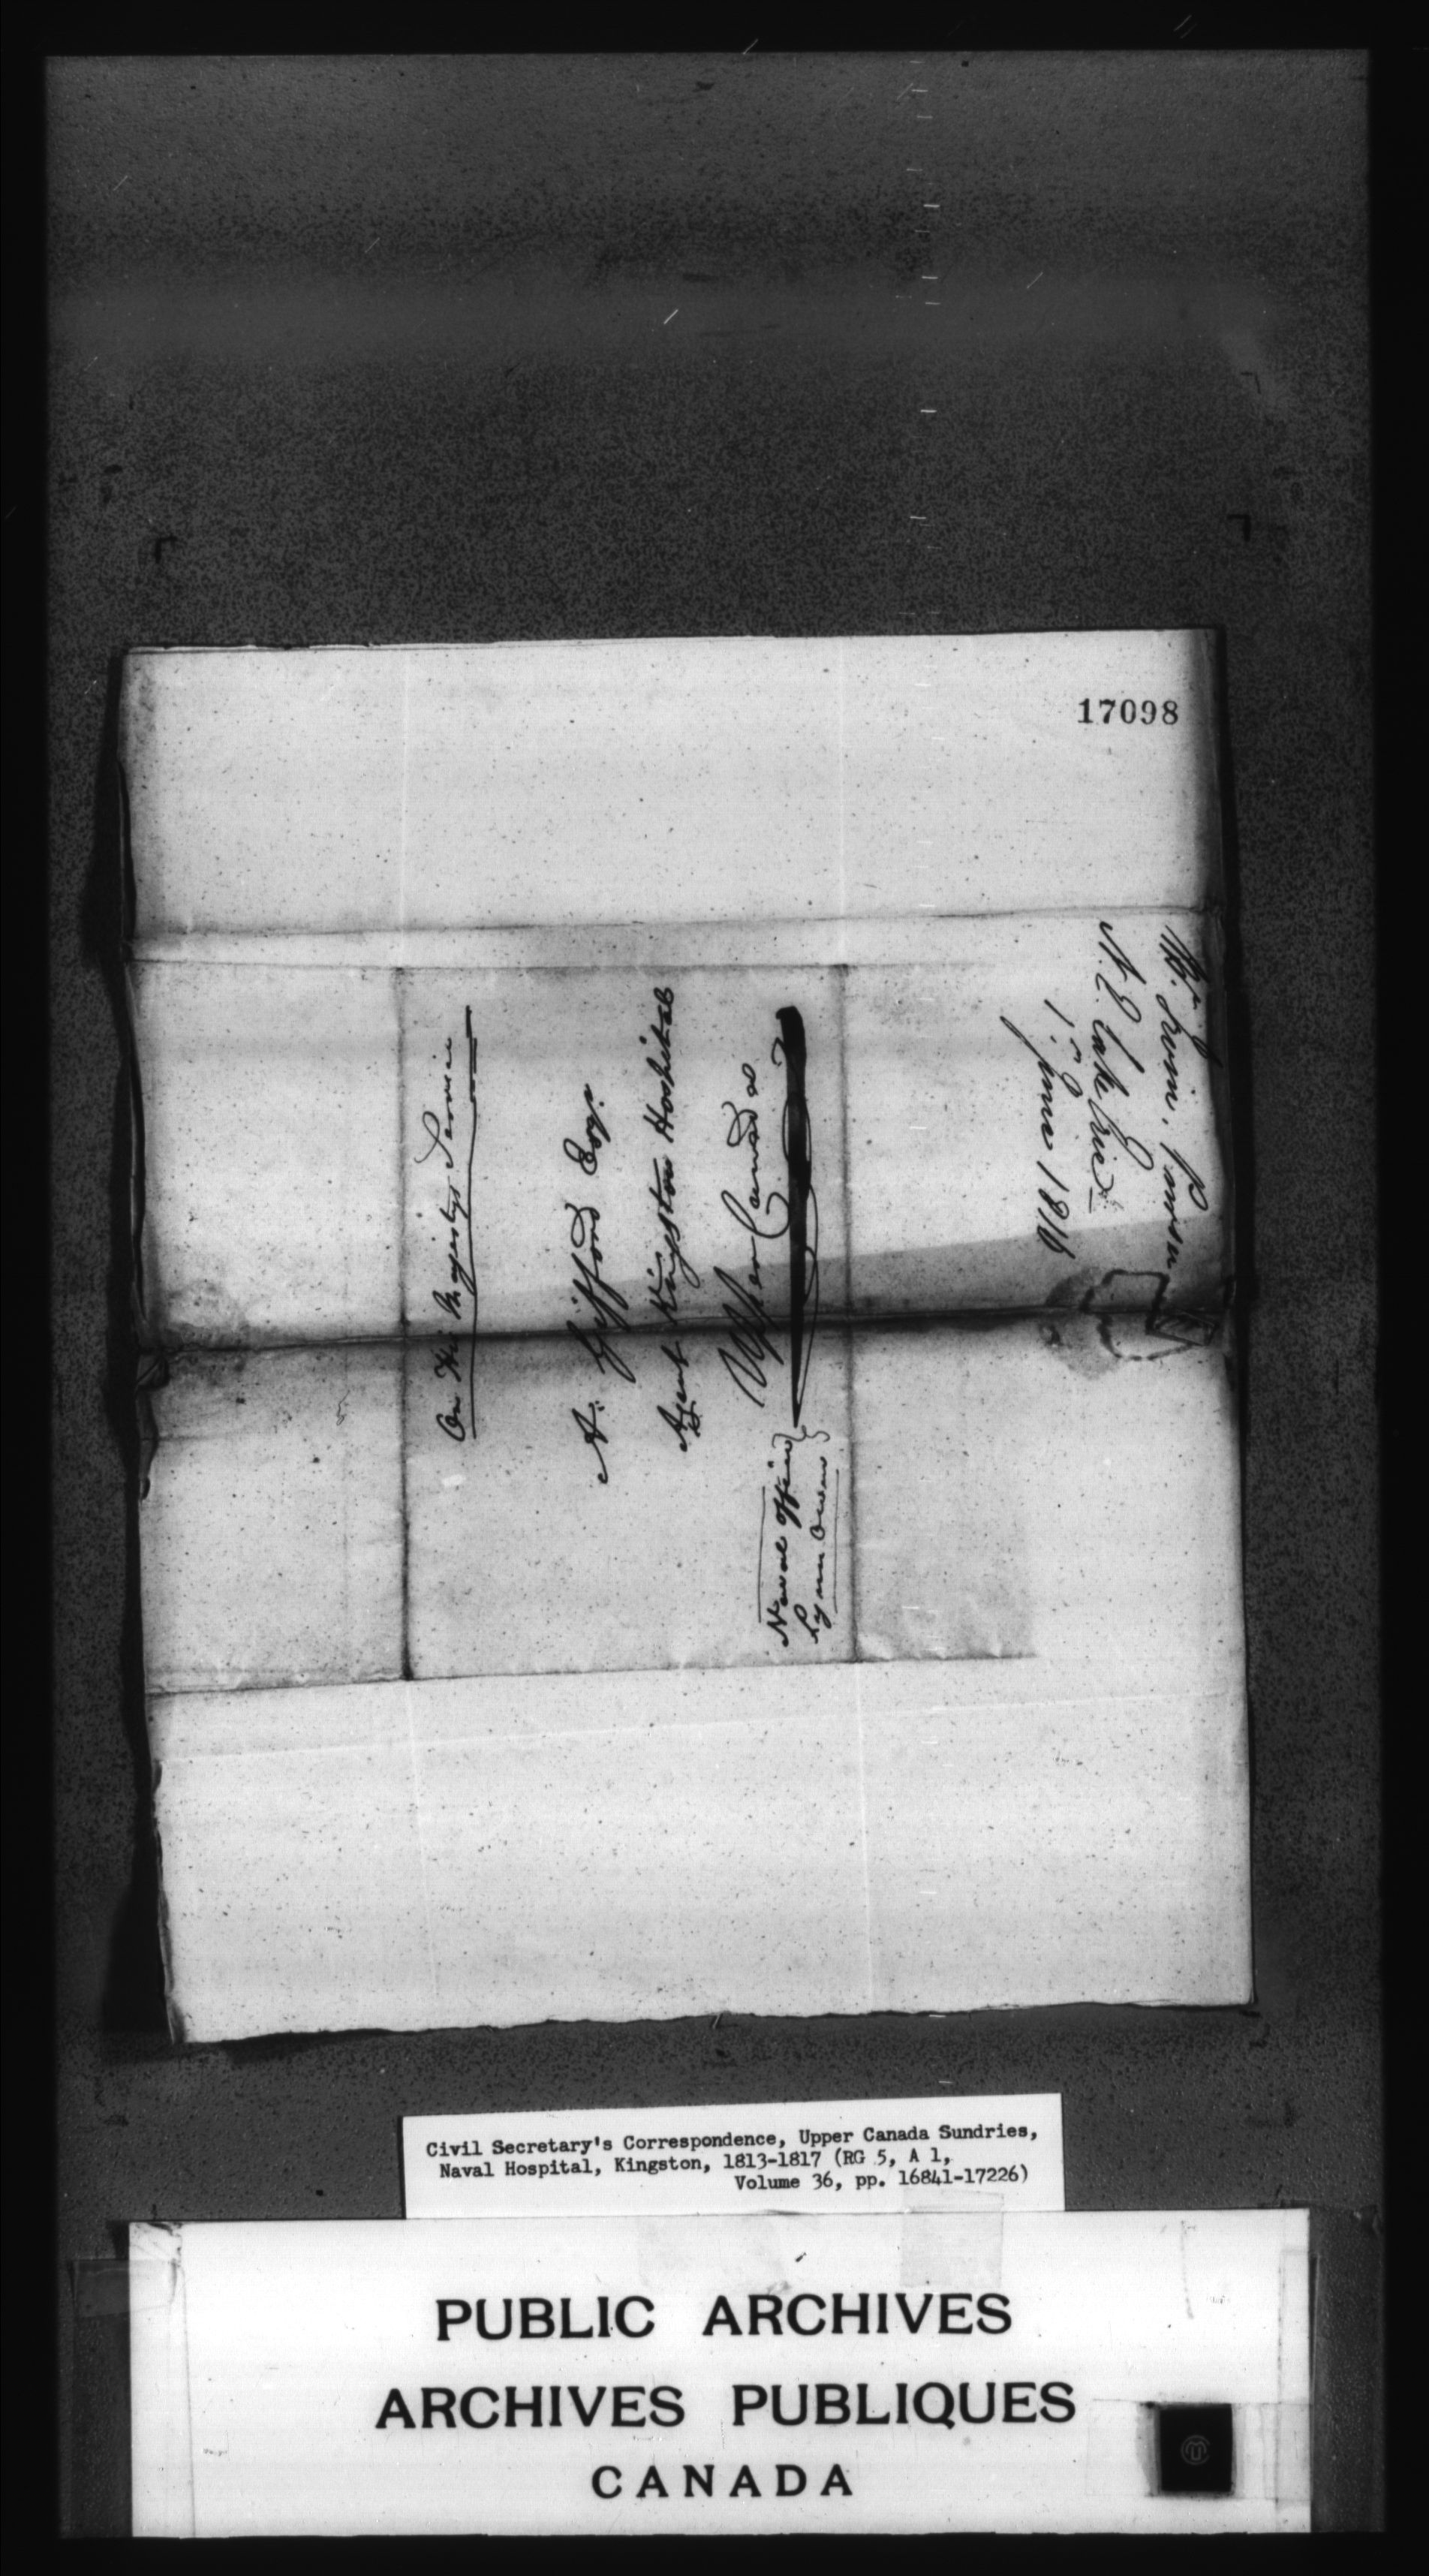 17098
On His Majestys Service
A. Gifford Esqr.
Agent Kingston Hospital
Upper Canada
Naval Office
Lynn Owen
1st June 1816
Civil Secretary's Correspondence, Upper Canada Sundries,
Naval Hospital, Kingston, 1813-1817 (RG 5, A 1,
Volume 36, pp. 16841-17226)
PUBLIC ARCHIVES
ARCHIVES PUBLIQUES
CANADA